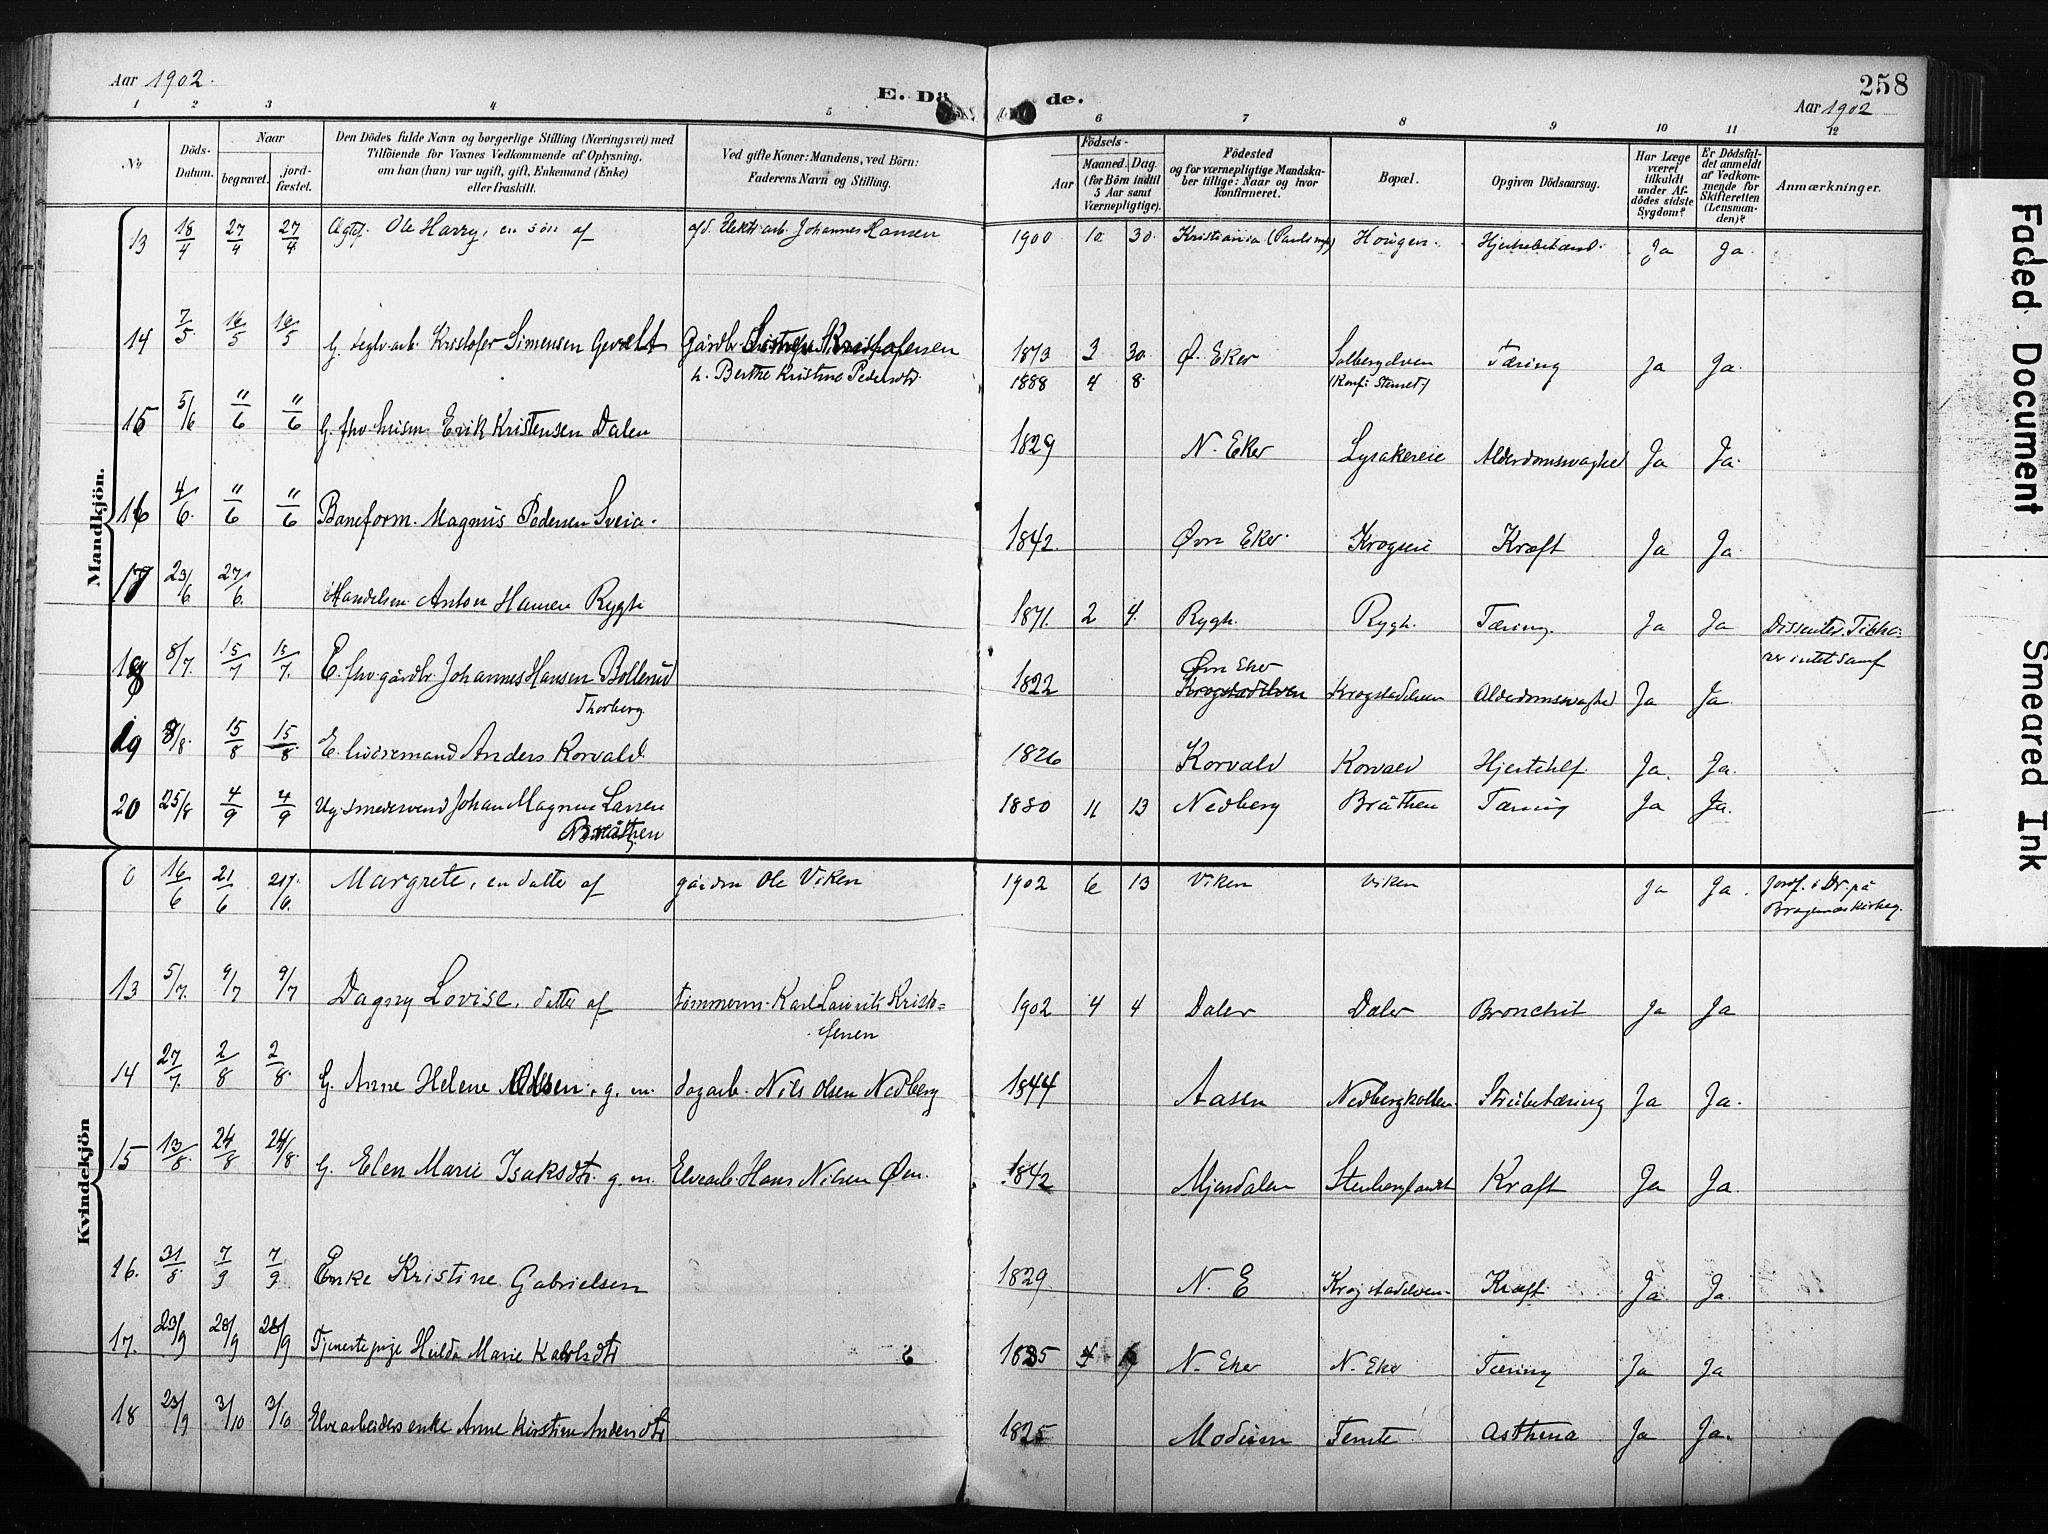 Aar 1902.
E. Dö
de.
258
Aar 1902
1 2 3 4 5 6 7 8 9 10 11 12
No
Döds-Datum.
Naar
begravet.
jord-fæstet.
Den Dödes fulde Navn og borgerlige Stilling (Næringsvei) med
Tilföiende for Voxnes Vedkommende af Oplysning,
om han (hun) var ugift, gift, Enkemand (Enke)
eller fraskilt.
Ved gifte Koner: Mandens, ved Börn:
Faderens Navn og Stilling.
Födsels-
Aar
Maaned. Dag.
(for Börn indtil
5 Aar samt
Værnepligtige).
Födested
og for værnepligtige Mandska-
ber tillige: Naar og hvor
Konfirmeret.
Bopæl.
Opgiven Dödsaarsag.
Har Læge
været
tilkaldt
under Af-
dödes sidste
Sygdom?
Er Dödsfal-
det anmeldt
af Vedkom-
mende for
Skifteretten
(Lensman-
den)?
Anmærkninger.
Mandkjön.
13 18/4 27/4 27/4 Ole Harry, en sön af Johannes Hansen 1900 10 30 Kristiania Hougen Ja Ja.
14 7/5 16/5 16/5 G. teglv.arb. Kristofer Simensen Gurelt Gårdbr. 1873 3 30 Ø. Eker Solbergelven Tæring Ja Ja.
h. Berthe Kristine Pedersdtr. 1888 4 8
15 5/6 11/6 11/6 G. fhv. husm. Erik Kristensen Dalen 1829 N. Eker Lysakereie Alderdomssvaghed Ja Ja.
16 4/6 11/6 11/6 Baneform. Magnus Pedersen Sveia. 1842. Övre Eker Krogseie Kræft Ja Ja.
17 23/6 27/6 Handelsm. Anton Hansen Rygh 1871. 2 4. Rygh. Rygh. Tæring. Ja Ja Dissenter. Tilhö-
rer intet samf
18 8/7. 15/7 15/7. E. fhv. gårdbr. Johannes Hansen Bollerud 1822 Övre Eker
Krogstadelven Krogstadelven Alderdomssvaghed Ja Ja.
Thorberg
19 8/8. 15/8 15/8. E. livöremand Anders Korvald. 1826 Korvald Korvald Hjertehlf. Ja. Ja.
20 25/8 4/9 4/9 Ug. smedesvend Johan Magnus Larsen 1880 11 13 Nedberg Bråthen Tæring Ja Ja.
Bråthen
Kvindekjön
0 16/6 21/6 Margrete, en datter af gårdm Ole Viken 1902 6 13 Viken Viken Ja Ja. Jordf. i Dr. på
Bragernæs kirkeg.
13 5/7. 9/7 9/7 Dagny Lovise, datter af tømmerm. Karl Laurits Kristo-
fersen 1902 4 4 Daler Daler Bronchit Ja Ja
14 27/7. 2/8 2/8. G. Anne Helene Olsen, g. m. dagarb. Nils Olsen Nedberg 1844 Aasen Nedbergkollen Strubetæring Ja Ja.
15 13/8. 24/8 24/8. G. Elen Marie Isaksdtr. g. m. Elvearb. Hans Nilsen Øen. 1842 Mjøndalen Kræft Ja Ja.
16. 31/8. 7/9 7/9 Enke Kristine Gabrielsen 1829 N. E Krogstadelven Kræft. Ja Ja.
17. 23/9 28/9 28/9 Tjenestepige Hulda Marie Karlsdtr 1885 N. Eker N. Eker Tæring Ja Ja
18 23/9 3/10 3/10 Elvearbeiders enke Anne Kirstine Andersdtr 1825 Modum Temte Asthma Ja Ja.
Faded Document
Smeared Ink